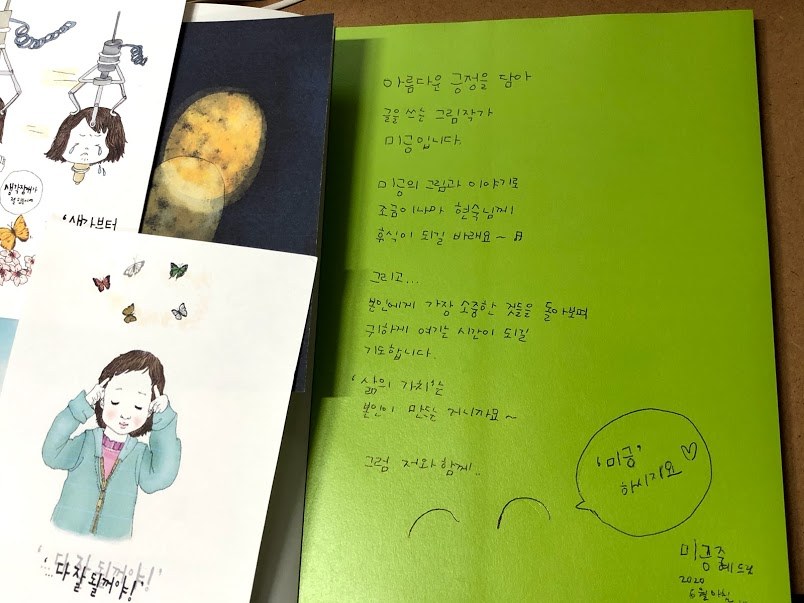 생각잠재가
'새가브터
'...다 잘 될꺼야!'
아름다운 긍정을 담아
글을 쓰는 그림작가
미긍입니다.
미긍의 그림과 이야기로
조금이나마 현숙님께
휴식이 되길 바래요~
그리고...
본인에게 가장 소중한 것들을 돌아보며
귀하게 여기는 시간이 되길
기도합니다.
'삶의 가치'는
본인이 만드는 거니까요~
그럼 저와 함께..
'미긍'
하시지요 ♡
미긍
2020
6월